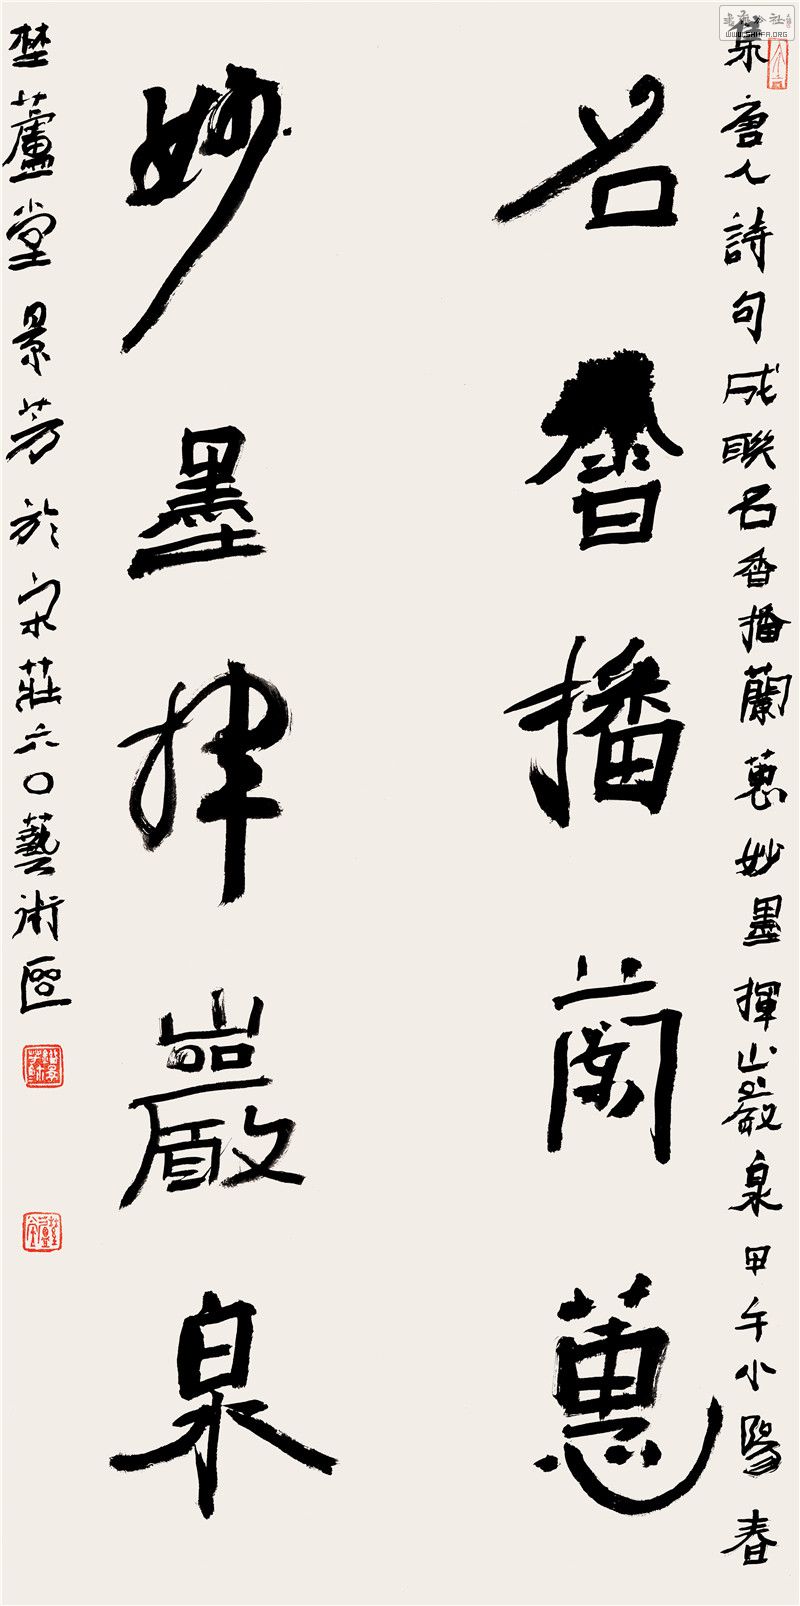 集唐人詩句成聯名香播蘭蕙妙墨揮山巖泉甲午小陽春
名香播蘭蕙
妙墨揮巖泉
埜蘆堂景芳於宋莊六〇藝術區
www.SHUFA.ORG